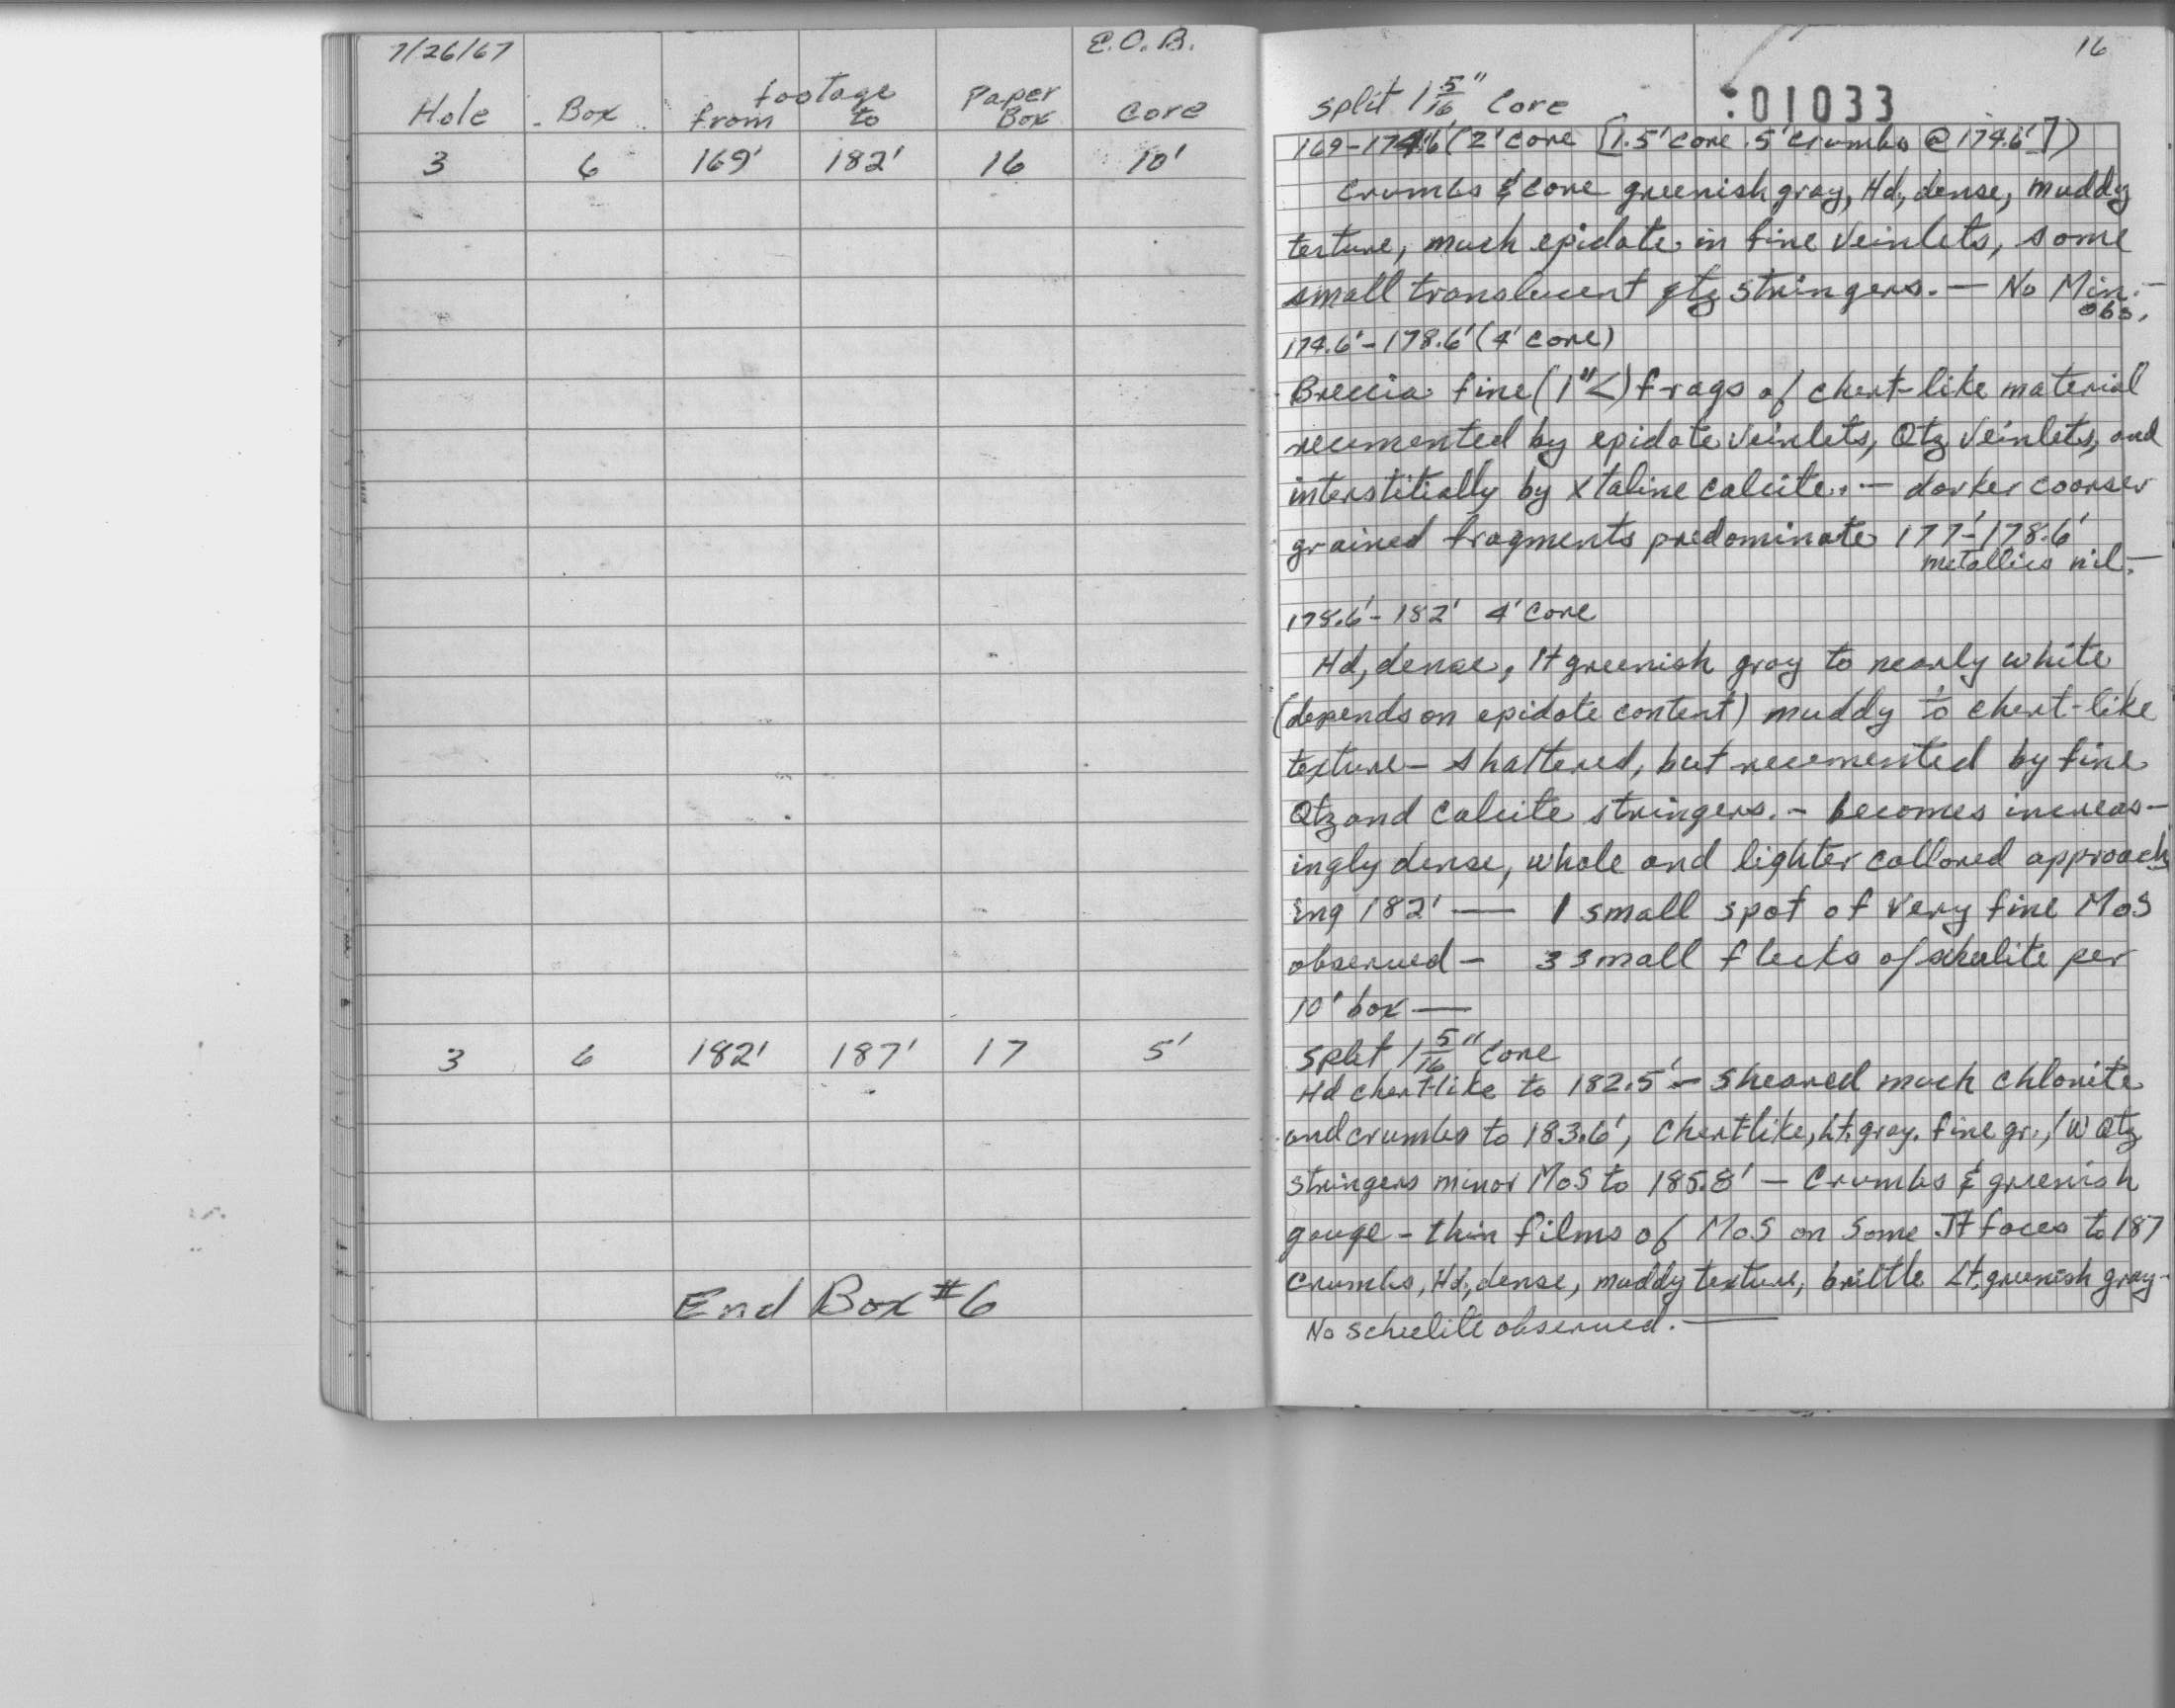 7/26/67 E.O.B.
footage
Hole Box from to Paper Box Core
3 6 169' 182' 16 10'
3 6 182' 187' 17 5'
End Box #6
16
:01033
split 1 5/16" Core
169-174.6' (2' core [1.5' core .5' crumbs @ 174.6'])
Crumbs & core greenish gray, Hd, dense, muddy
texture, much epidote in fine veinlets, some
small translucent qtz stringers. — No Min. —
obs.
174.6' - 178.6' (4' core)
Breccia fine (1"<) frags of chert-like material
recemented by epidote veinlets, Qtz veinlets, and
interstitially by xtaline calcite. — darker coarser
grained fragments predominate 177'-178.6'
metallics nil. —
178.6' - 182' 4' core
Hd, dense, lt greenish gray to nearly white
(depends on epidote content) muddy to chert-like
texture - shattered, but recemented by fine
Qtz and Calcite stringers. - becomes increas-
ingly dense, whole and lighter collored approach
ing 182' — 1 small spot of very fine MoS
observed - 3 small flecks of scheelite per
10' box —
split 1 5/16" Core
Hd chertlike to 182.5' - sheared much chlorite
and crumbs to 183.6', Chertlike, Lt. gray, fine gr., /W Qtz
stringers minor MoS to 185.8' - Crumbs & greenish
gouge - thin films of MoS on some Jt faces to 187
Crumbs, Hd, dense, muddy texture, brittle Lt. greenish gray -
No scheelite observed. —